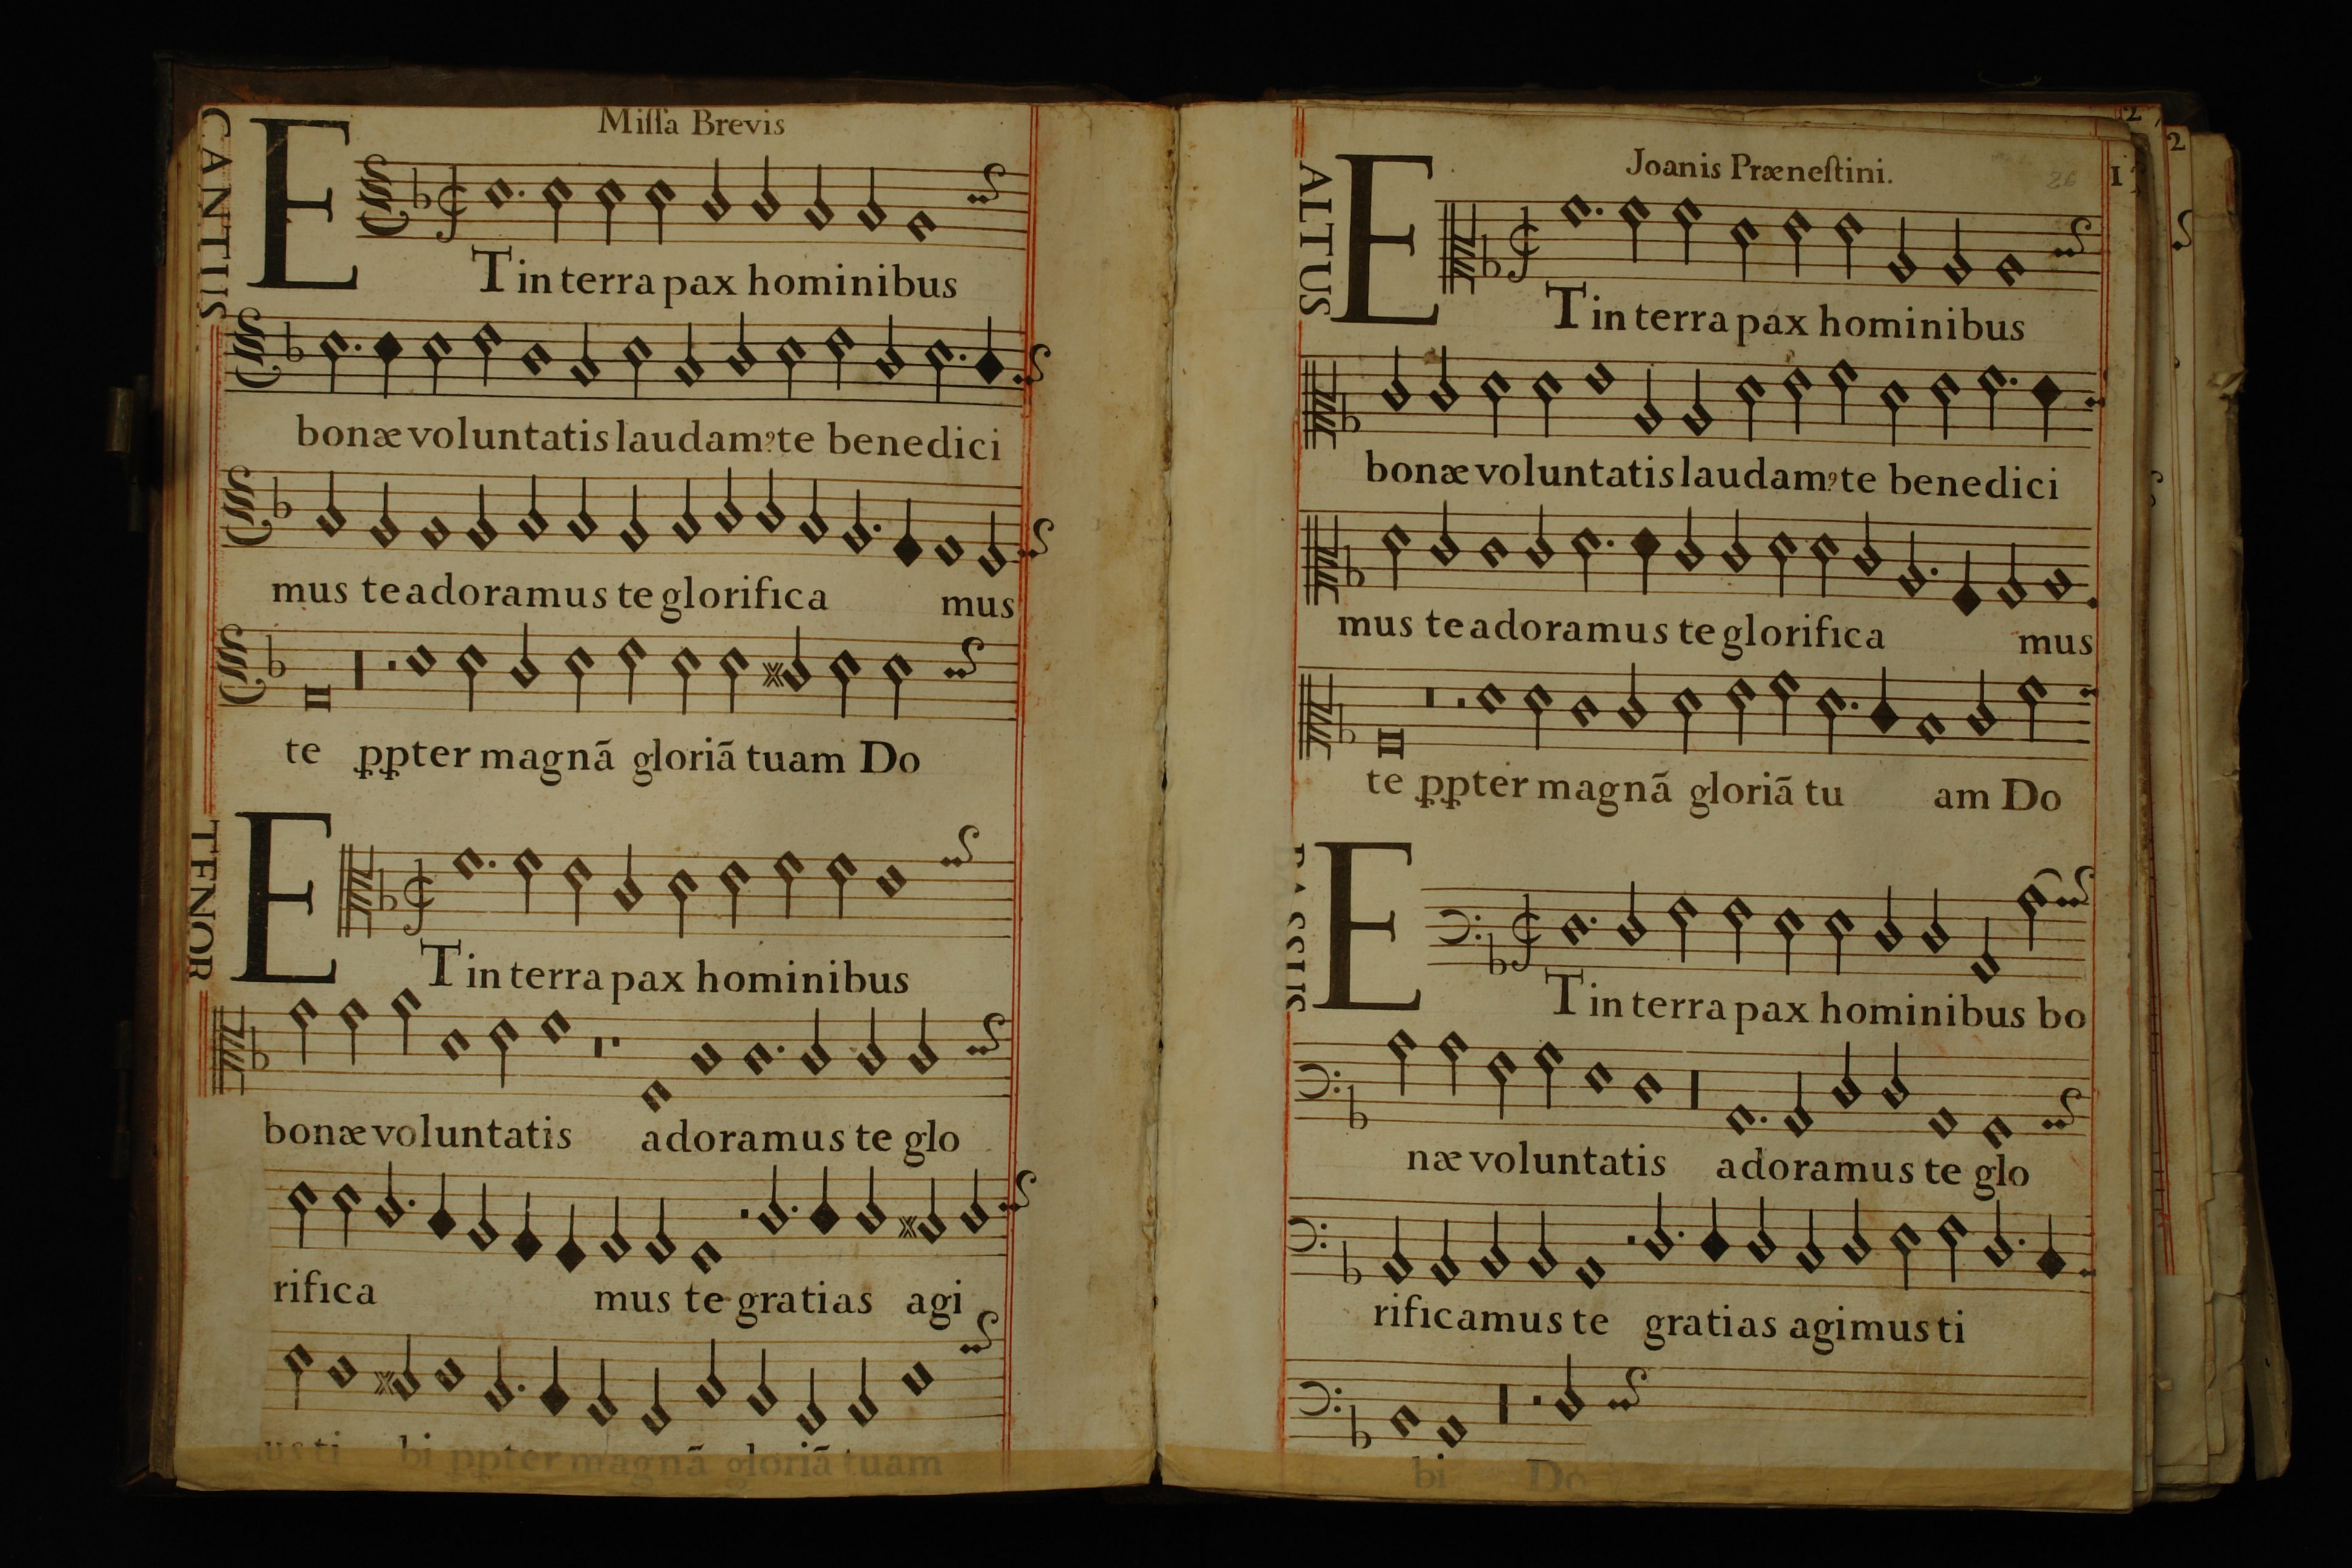 Miſſa Brevis
CANTUS
E
T in terra pax hominibus
bonæ voluntatis laudamꝰ te benedici
mus te adoramus te glorifica mus
te ꝓꝑter magnã gloriã tuam Do
TENOR
E
T in terra pax hominibus
bonæ voluntatis adoramus te glo
rifica mus te gratias agi
us ti bi ꝓꝑter magnã gloriã tuam
Joanis Præneſtini.
26
ALTUS
E
T in terra pax hominibus
bonæ voluntatis laudamꝰ te benedici
mus te adoramus te glorifica mus
te ꝓꝑter magnã gloriã tu am Do
E
T in terra pax hominibus bo
næ voluntatis adoramus te glo
rificamus te gratias agimus ti
bi Do